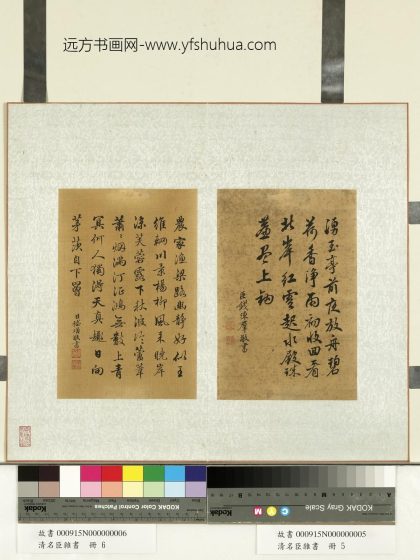 远方书画网-www.yfshuhua.com
湧玉亭前夜放舟碧
荷香淨雨初收回看
北岸紅雲起水殿珠
簾盡上鉤
臣錢陳羣敬書
農家漁梁路幽靜好似王
維輞川景楊柳風來晚岸
涼芙蓉露下秋波冷
蕭蕭烟滿汀征鴻無數上青
冥何人獨得天真趣日向
茅茨自下扃
臣嵇璜敬書
KODAK Color Control Patches
KODAK Gray Scale
C
Y
M
故書 000915N000000006
清名臣雜書 冊 6
故書 000915N000000005
清名臣雜書 冊 5